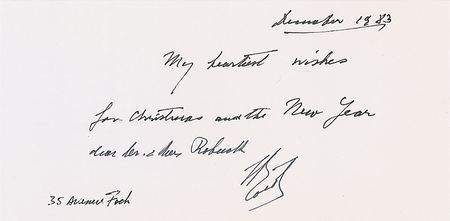 December 1983
My heartiest wishes
for Christmas and the New Year
dear Mr. & Mrs
35 Avenue Foch